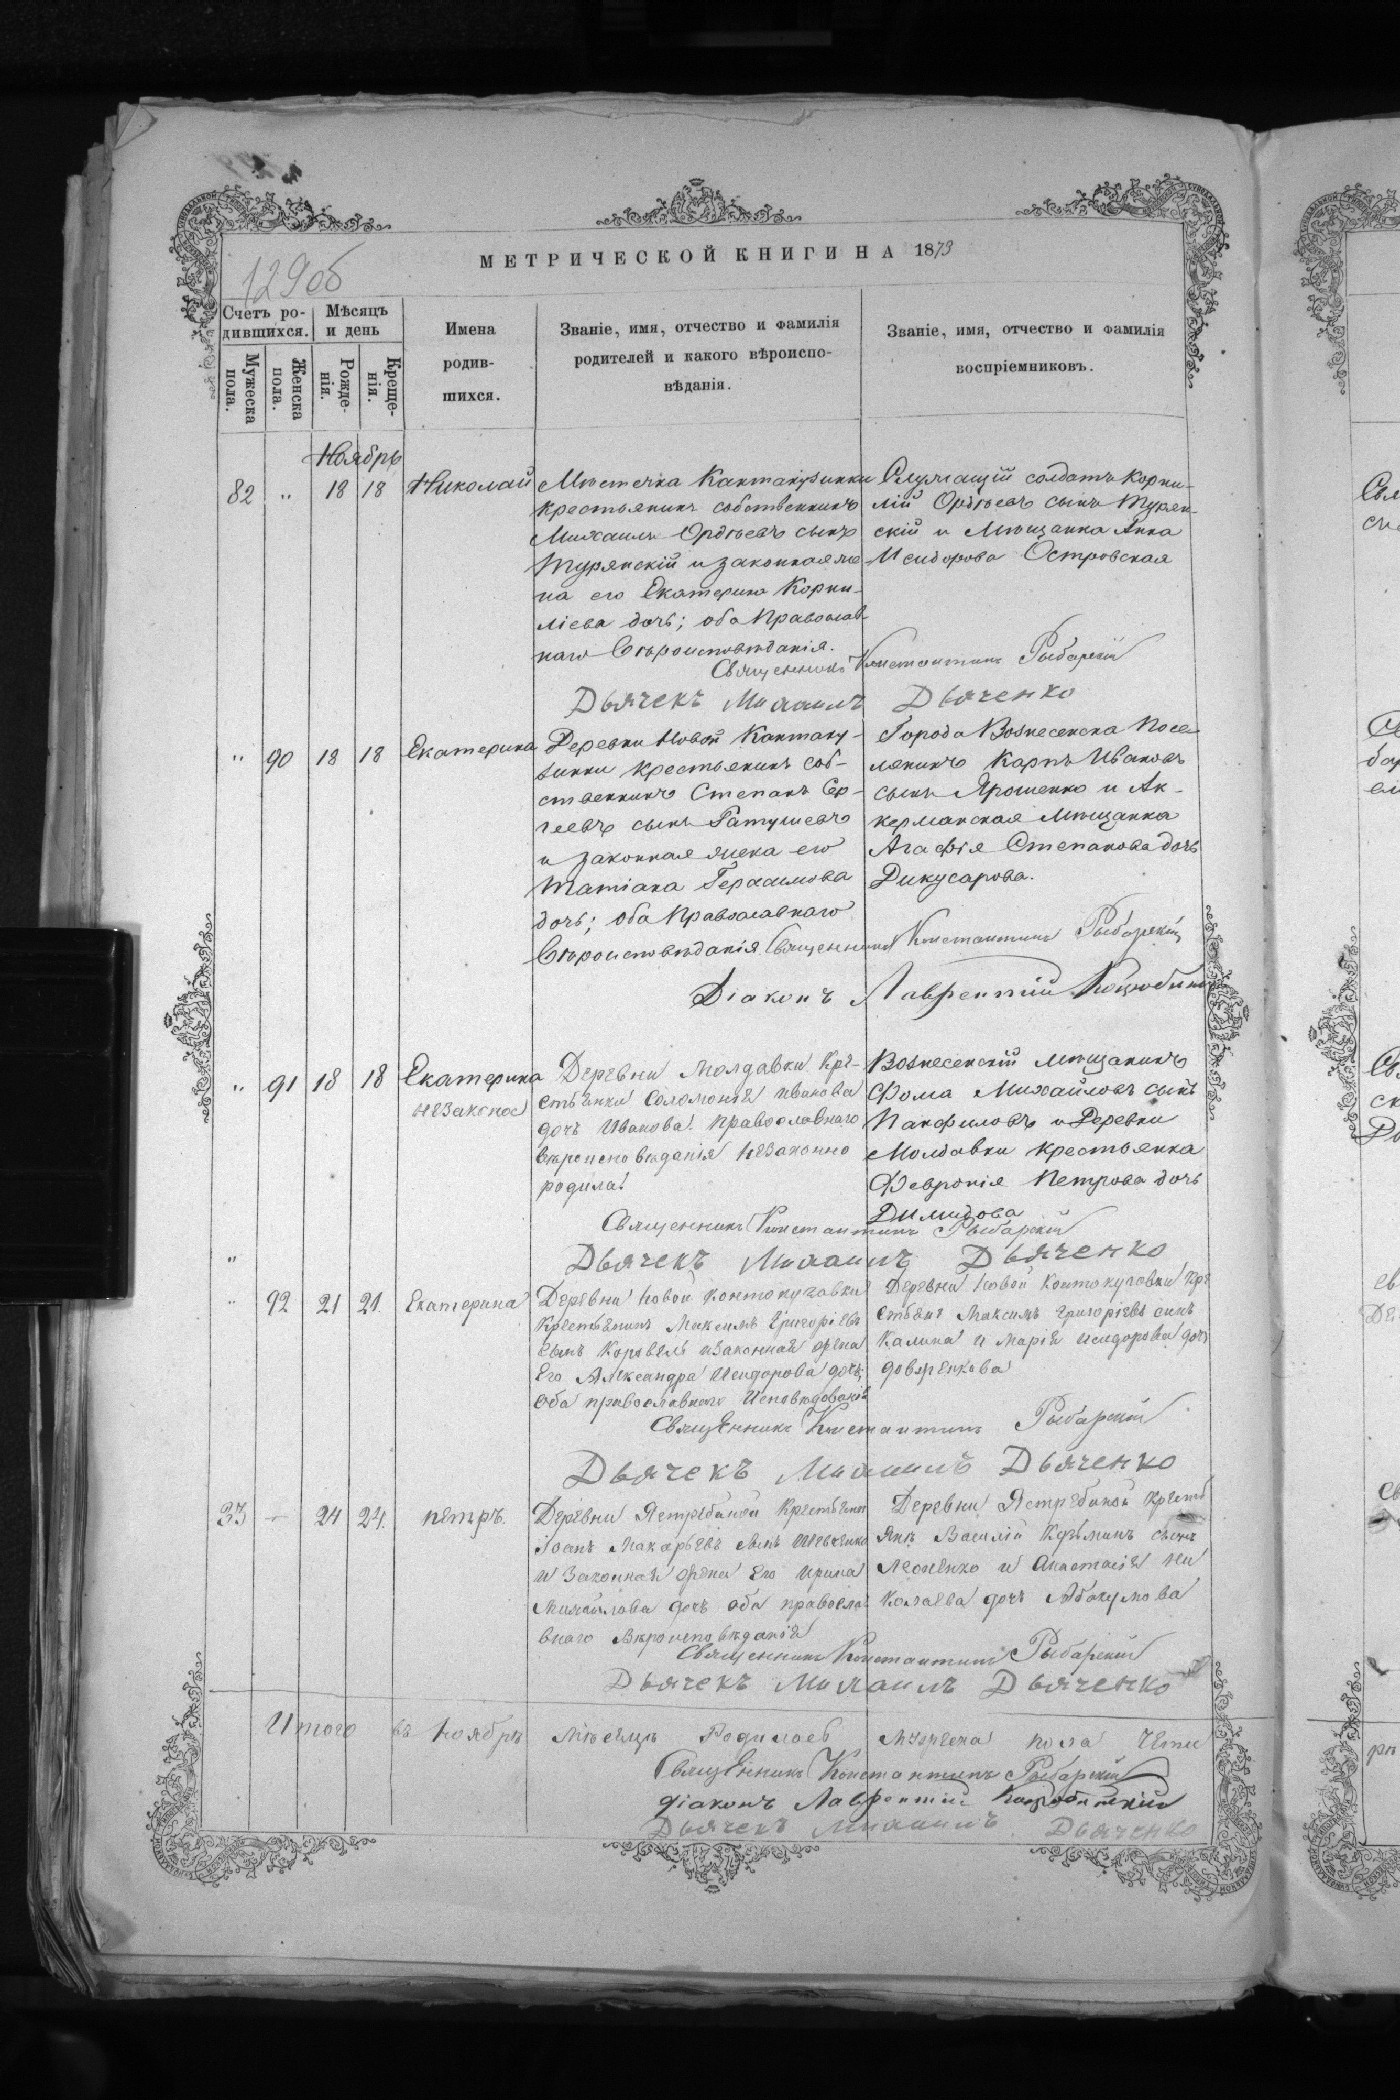 129об
МЕТРИЧЕСКОЙ КНИГИ НА 1873
Счетъ ро-
дившихся.
Мѣсяцъ
и день
Мужеска
пола.
Женска
пола.
Рожде-
нія.
Креще-
нія.
Имена
родив-
шихся.
Званіе, имя, отчество и фамилія
родителей и какого вѣроиспо-
вѣданія.
Званіе, имя, отчество и фамилія
воспріемниковъ.
Ноябрь
82 „ 18 18 Николай
Мѣстечка Кантакузинки
крестьянинъ собственникъ
Михаилъ Ѳрдѣевъ сынъ
Турянскій и законная же-
на его Екатерина Корни-
ліева дочь; оба Православ-
наго Вѣроисповѣданія.
Служащій солдатъ Корни-
лій Ѳрдѣевъ сынъ Турян-
скій и Мѣщанка Анна
Исидорова Островская
Священникъ Константинъ Рыбарскій
Дьячекъ Михаилъ Дьяченко
„ 90 18 18 Екатерина
Деревни Новой Кантаку-
зинки крестьянинъ соб-
ственникъ Степанъ Сер-
геевъ сынъ Гатушевъ
и законная жена его
Татіана Герасимова
дочь; оба Православнаго
Вѣроисповѣданія.
Города Вознесенска Посе-
лянинъ Карпъ Ивановъ
сынъ Ярошенко и Ак-
керманская Мѣщанка
Агафія Степанова дочь
Дикусарова.
Священникъ Константинъ Рыбарскій
Діаконъ Лаврентій
„ 91 18 18 Екатерина
незаконная
Деревни Молдавки Кре-
стьянка Соломонія Иванова
дочь Иванова Православнаго
вѣроисповѣданія незаконно
родила
Вознесенскій мѣщанинъ
Фома Михайловъ сынъ
Панфиловъ и Деревни
Молдавки крестьянка
Февронія Петрова дочь
Димидова
Священникъ Константинъ Рыбарскій
Дьячекъ Михаилъ Дьяченко
„
„ 92 21 21. Екатерина
Деревни Новой Контокузовки
Крестьянинъ Максимъ Григоріевъ
сынъ Коровель и Законная жена
Его Александра Исидорова дочь;
оба православнаго Исповѣдованія
Деревни Новой Контокузовки Кре
стьянъ Максимъ Григоріевъ сынъ
Калина и Марія Исидорова дочь
довженкова
Священникъ Константинъ Рыбарскій
Дьячекъ Михаилъ Дьяченко
33 — 24 24. Петръ.
Деревни Ястребиной Крестьянин
Іоанъ Макарьевъ сынъ Шевченко
и Законная жена Его Ирина
Михайлова дочь оба правосла
внаго Вѣроисповѣданія
Деревни Ястребиной Крестья
янъ Василій Кузьминъ сынъ
Леоненко и Анастасія Ни
колаева дочь Абакумова
Священникъ Константинъ Рыбарскій
Дьячекъ Михаилъ Дьяченко
Итого въ Ноябрѣ Мѣсяцѣ Родилось Мужеска пола
Священникъ Константинъ Рыбарскій
діаконъ Лаврентій
Дьячекъ Михаилъ Дьяченко